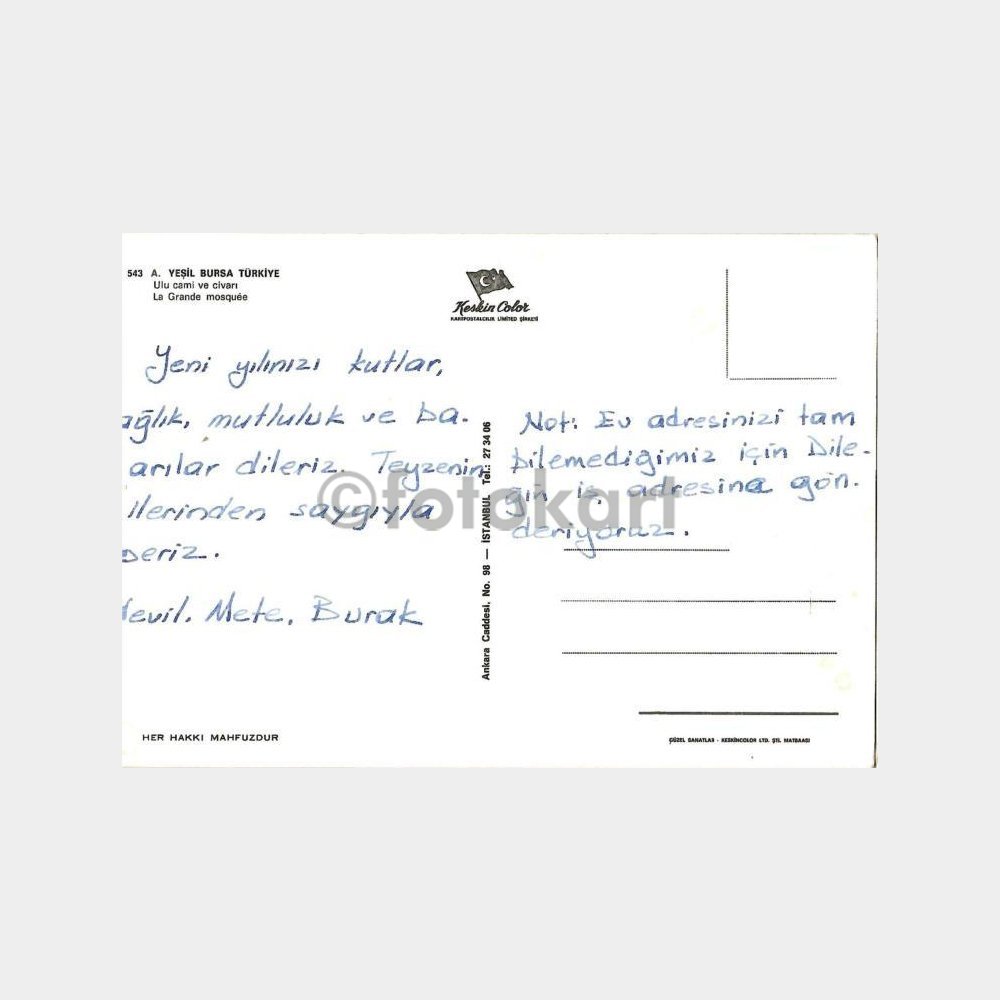 543 A. YEŞİL BURSA TÜRKİYE
Ulu cami ve civarı
La Grande mosquée
Keskin Color
KARTPOSTALCILIK LİMİTED ŞİRKETİ
Yeni yılınızı kutlar,
ağlık, mutluluk ve ba-
arılar dileriz. Teyzenin
llerinden saygıyla
periz.
Nevil. Mete, Burak
Ankara Caddesi. No. 98 — İSTANBUL Tel.: 27 34 06
Not: Ev adresinizi tam
bilemediğimiz için Dile-
ğin iş adresine gön-
deriyoruz.
©fotokart
HER HAKKI MAHFUZDUR
GÜZEL SANATLAR - KESKİNCOLOR LTD. ŞTİ. MATBAASI